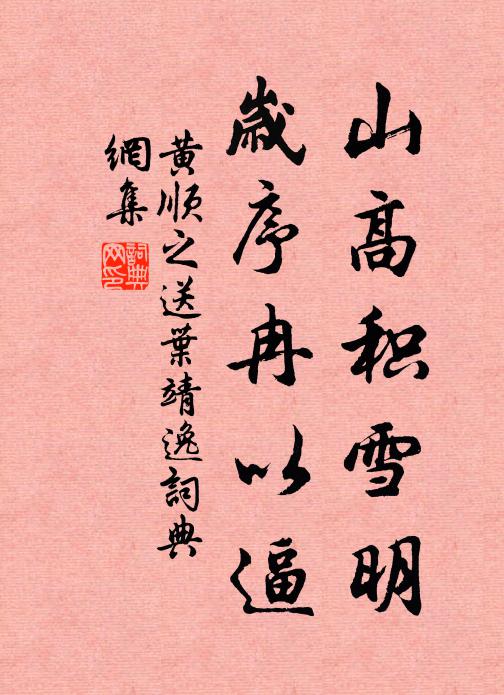 山高积雪明
歲序冉以逼
黄順之送葉靖逸詞典
網集
詞典
网印